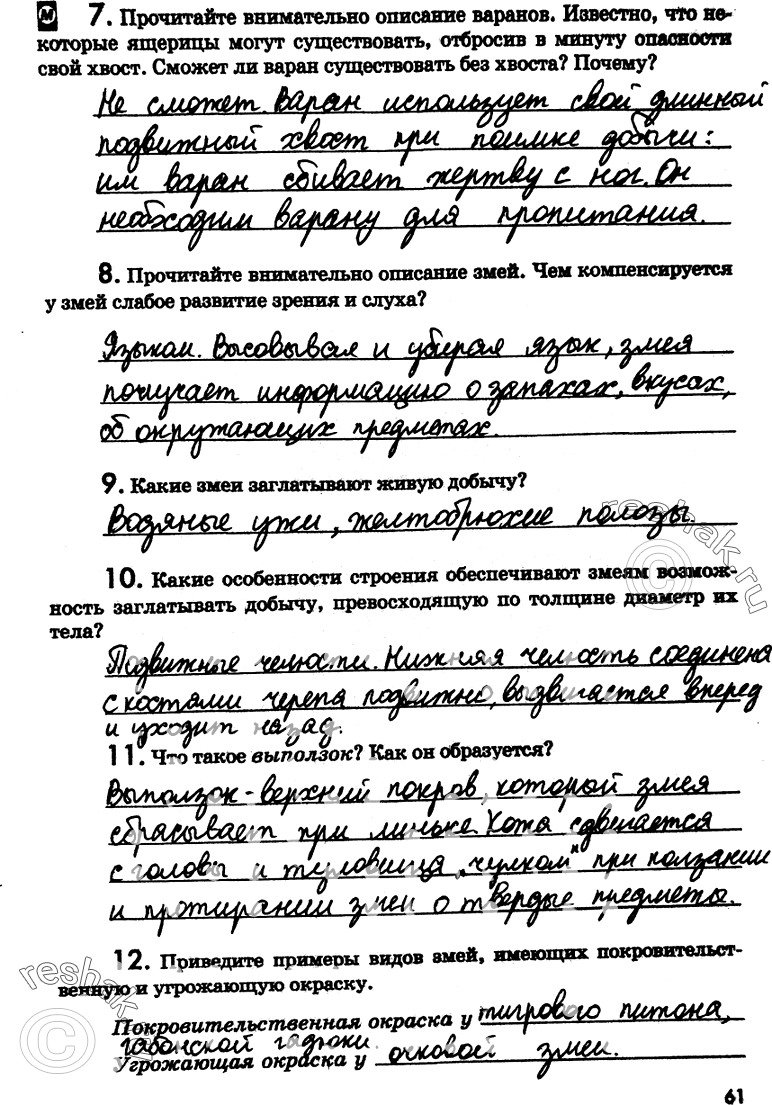 М 7. Прочитайте внимательно описание варанов. Известно, что не-
которые ящерицы могут существовать, отбросив в минуту опасности
свой хвост. Сможет ли варан существовать без хвоста? Почему?
Не сможет. Варан использует свой длинный
подвижный хвост при поимке добычи:
им варан сбивает жертву с ног. Он
необходим варану для пропитания.
8. Прочитайте внимательно описание змей. Чем компенсируется
у змей слабое развитие зрения и слуха?
Языком. Высовывая и убирая язык, змея
получает информацию о запахах, вкусах,
об окружающих предметах.
9. Какие змеи заглатывают живую добычу?
Водяные ужи, желтобрюхие полозы.
10. Какие особенности строения обеспечивают змеям возмож-
ность заглатывать добычу, превосходящую по толщине диаметр их
тела?
Подвижные челюсти. Нижняя челюсть соединена
с костями черепа подвижно, выдвигается вперед
и уходит назад.
11. Что такое выползок? Как он образуется?
Выползок - верхний покров, который змея
сбрасывает при линьке. Кожа сдвигается
с головы и туловища "чулком" при ползании
и протирании змеи о твердые предметы.
12. Приведите примеры видов змей, имеющих покровительст-
венную и угрожающую окраску.
Покровительственная окраска у тигрового питона,
габонской гадюки.
Угрожающая окраска у очковой змеи.
61
reshak.ru
reshak.ru